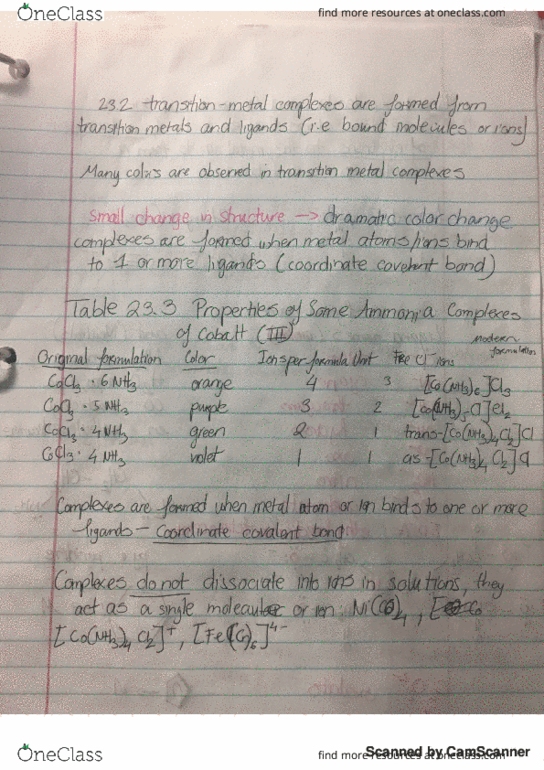 OneClass
find more resources at oneclass.com
23.2 transition-metal complexes are formed from
transition metals and ligands (i.e bound molecules or ions)
Many colors are observed in transition metal complexes
Small change in structure → dramatic color change
complexes are formed when metal atoms/ions bind
to 1 or more ligands (coordinate covalent bond)
Table 23.3 Properties of Some Ammonia Complexes
of Cobalt (III)
modern
formulation
Original formulation Color Ions per formula Unit free Cl⁻ ions
CoCl₃ · 6 NH₃ orange 4 3 [Co(NH₃)₆]Cl₃
CoCl₃ · 5 NH₃ purple 3 2 [Co(NH₃)₅Cl]Cl₂
CoCl₃ · 4 NH₃ green 2 1 trans-[Co(NH₃)₄Cl₂]Cl
CoCl₃ · 4 NH₃ violet 1 1 cis-[Co(NH₃)₄Cl₂]Cl
Complexes are formed when metal atom or ion binds to one or more
ligands - Coordinate covalent bond
Complexes do not dissociate into ions in solutions, they
act as a single molecule or ion: Ni(CO)₄,
[Co(NH₃)₄Cl₂]⁺, [Fe(C)₆]⁴⁻
OneClass
find more resources at oneclass.com
Scanned by CamScanner